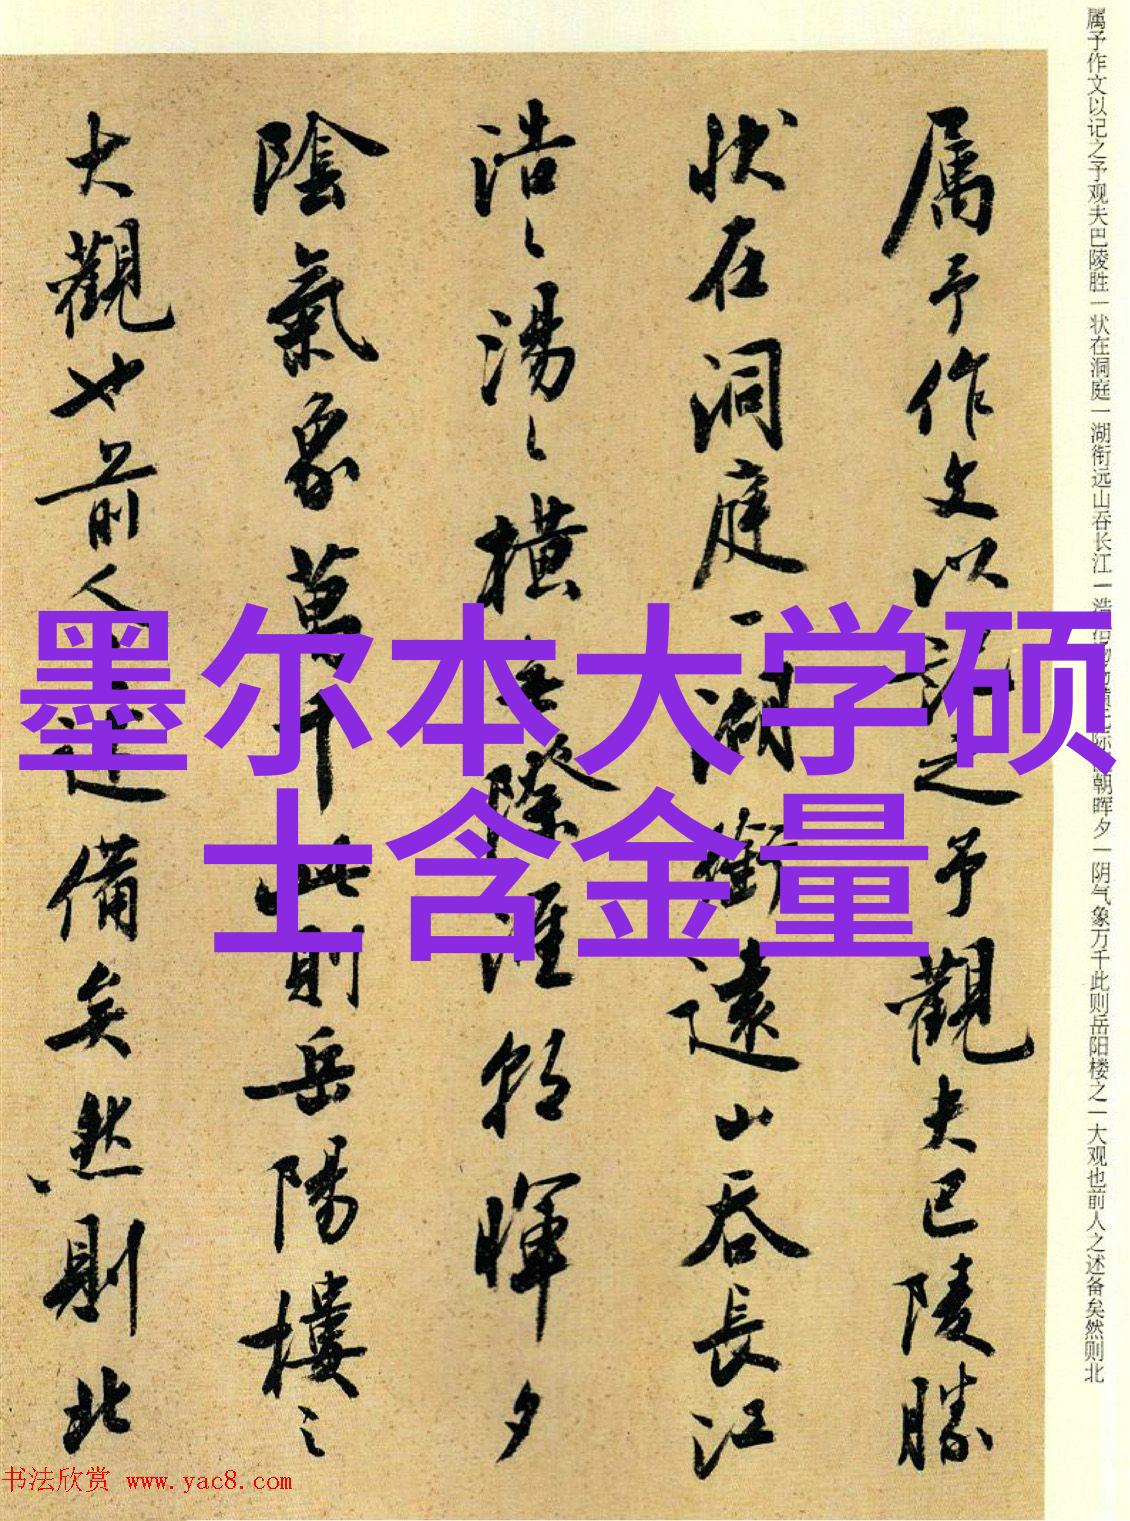 属予作文以记之予观夫巴陵胜
状在洞庭一湖衔远山吞长江
浩〻湯〻横無際涯朝暉夕
陰氣象萬千此則岳陽樓之
大觀也前人之述備矣然則北
属予作文以记之予观夫巴陵胜一状在洞庭一湖衔远山吞长江一浩浩汤汤横无际涯朝晖夕一阴气象万千此则岳阳楼之一大观也前人之述备矣然则北
墨尔本大学硕
士含金量
书法欣赏 www.yac8.com